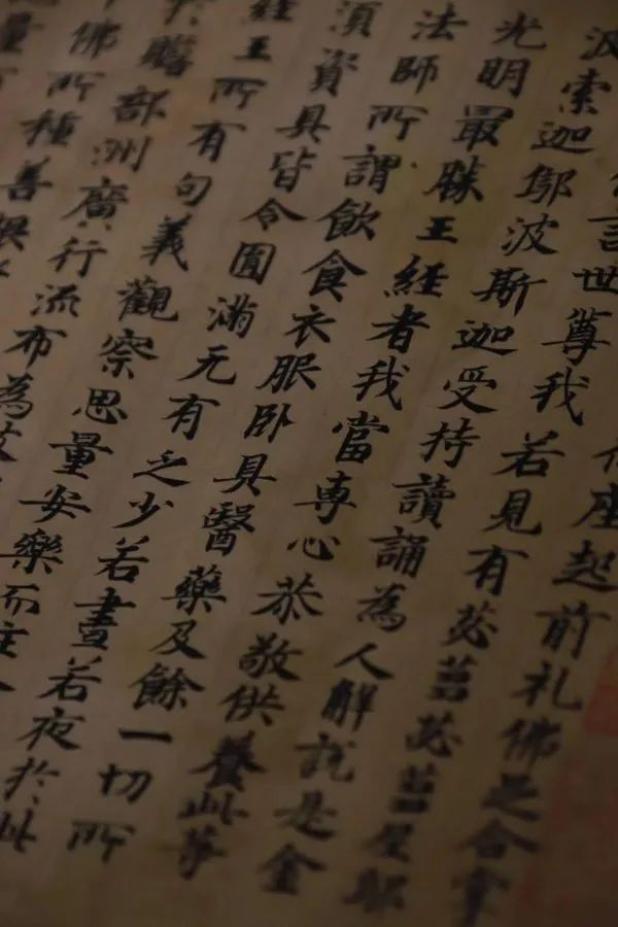 座起前礼佛足合掌
言世尊我若見有苾芻苾芻尼鄔
波索迦鄔波斯迦受持讀誦為人解說是金
光明最勝王經者我當専心恭敬供養此等
法師所謂飲食衣服卧具醫藥及餘一切所
須資具皆令圓滿元有乏少若晝若夜於此
經王所有句義觀察思量安樂而住
於贍部洲廣行流布為
佛所種善根